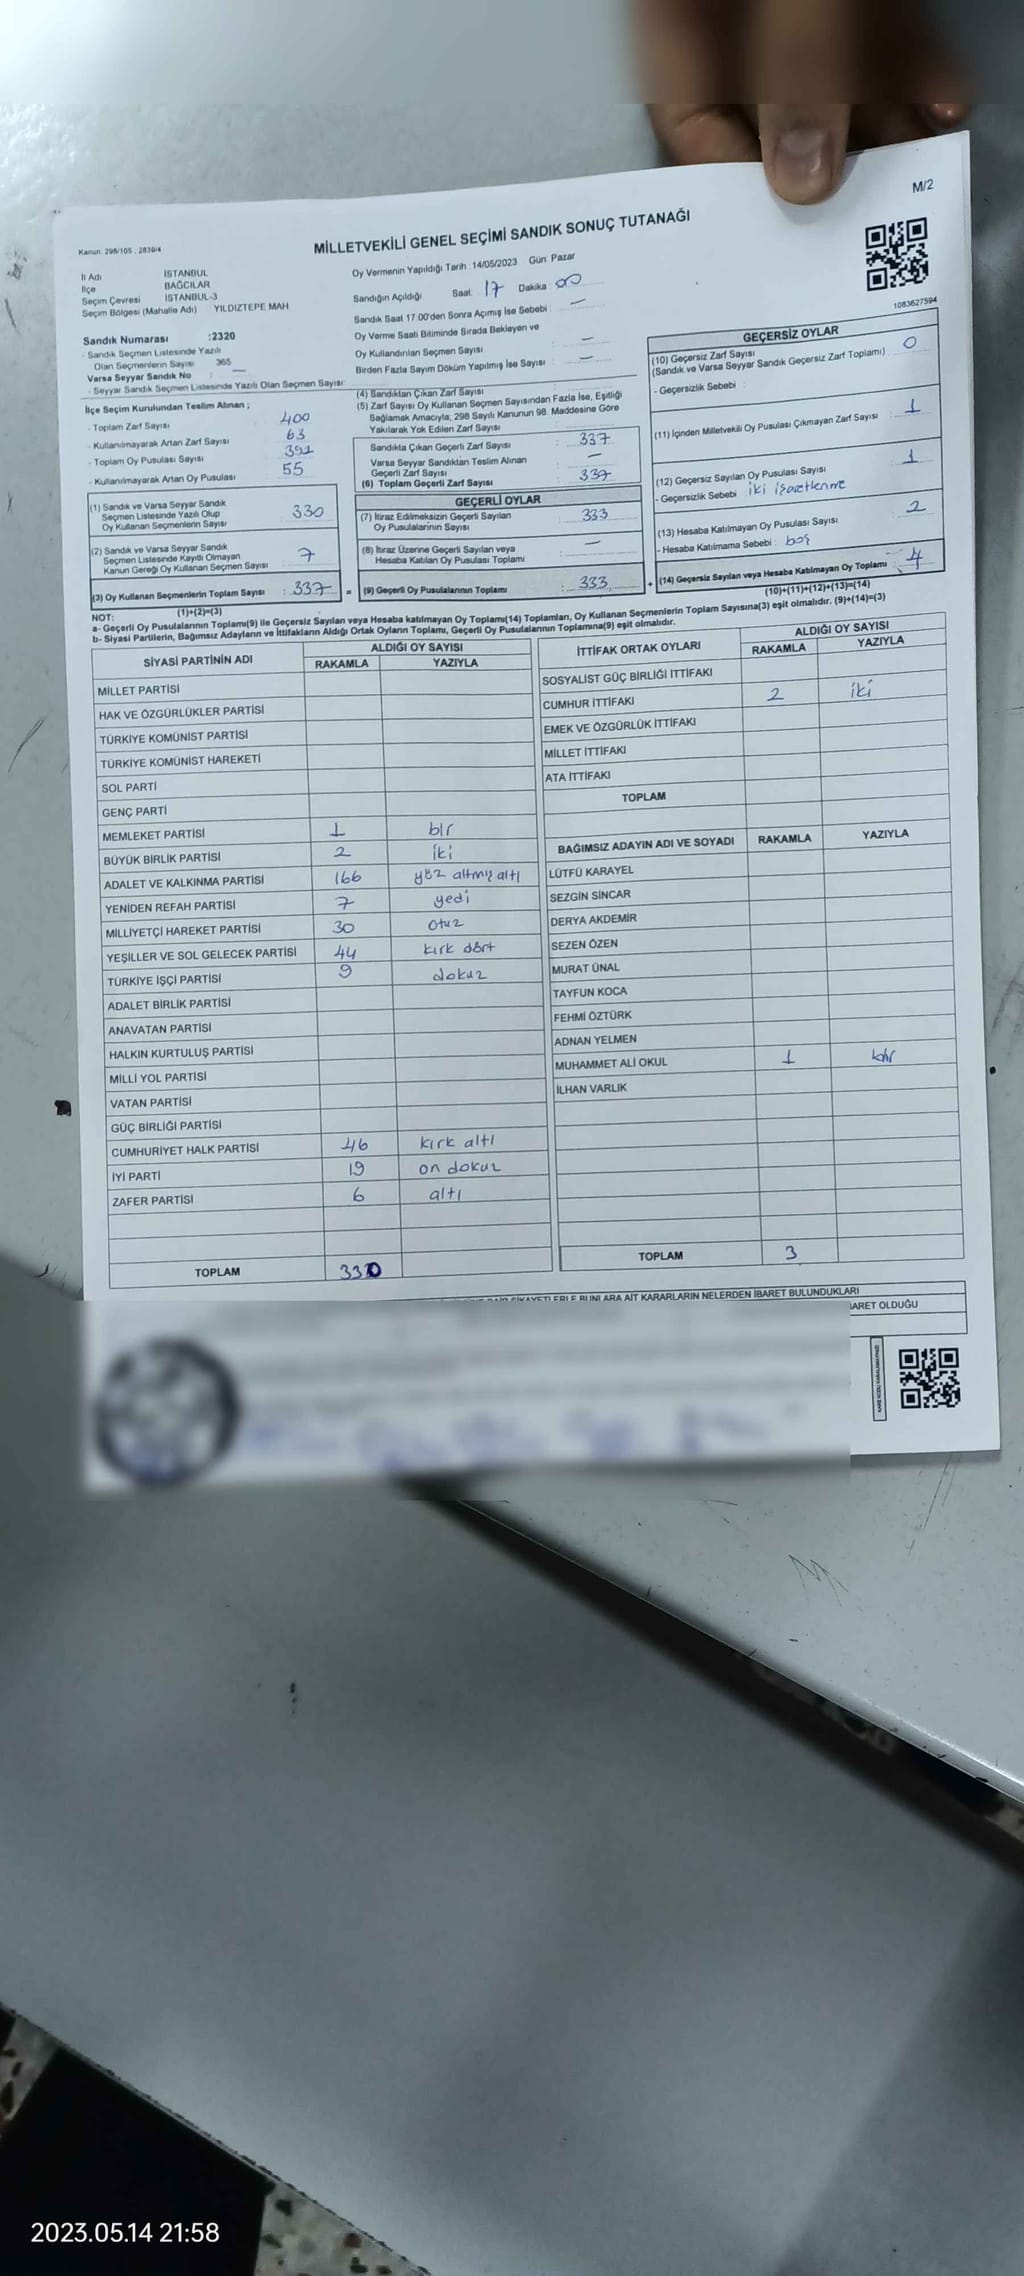 M/2
Kanun: 298/105 , 2839/4
MİLLETVEKİLİ GENEL SEÇİMİ SANDIK SONUÇ TUTANAĞI
İl Adı İSTANBUL
İlçe BAĞCILAR
Seçim Çevresi İSTANBUL-3
Seçim Bölgesi (Mahalle Adı) YILDIZTEPE MAH
Oy Vermenin Yapıldığı Tarih 14/05/2023 Gün Pazar
Sandığın Açıldığı Saat 17 Dakika 00
Sandık Saat 17.00'den Sonra Açımış İse Sebebi : —
Oy Verme Saati Bitiminde Sırada Bekleyen ve
Oy Kullandırılan Seçmen Sayısı : —
Birden Fazla Sayım Döküm Yapılmış İse Sayısı : —
1083627594
Sandık Numarası :2320
- Sandık Seçmen Listesinde Yazılı
Olan Seçmenlerin Sayısı 365
Varsa Seyyar Sandık No : —
- Seyyar Sandık Seçmen Listesinde Yazılı Olan Seçmen Sayısı:
İlçe Seçim Kurulundan Teslim Alınan ;
- Toplam Zarf Sayısı : 400
- Kullanılmayarak Artan Zarf Sayısı : 63
- Toplam Oy Pusulası Sayısı : 392
- Kullanılmayarak Artan Oy Pusulası : 55
(1) Sandık ve Varsa Seyyar Sandık
Seçmen Listesinde Yazılı Olup
Oy Kullanan Seçmenlerin Sayısı : 330
(2) Sandık ve Varsa Seyyar Sandık
Seçmen Listesinde Kayıtlı Olmayan
Kanun Gereği Oy Kullanan Seçmen Sayısı : 7
(3) Oy Kullanan Seçmenlerin Toplam Sayısı : 337 =
(1)+(2)=(3)
(4) Sandıktan Çıkan Zarf Sayısı
(5) Zarf Sayısı Oy Kullanan Seçmen Sayısından Fazla İse, Eşitliği
Sağlamak Amacıyla; 298 Sayılı Kanunun 98. Maddesine Göre
Yakılarak Yok Edilen Zarf Sayısı
Sandıkta Çıkan Geçerli Zarf Sayısı : 337
Varsa Seyyar Sandıktan Teslim Alınan
Geçerli Zarf Sayısı : —
(6) Toplam Geçerli Zarf Sayısı : 337
GEÇERLİ OYLAR
(7) İtiraz Edilmeksizin Geçerli Sayılan
Oy Pusulalarının Sayısı : 333
(8) İtiraz Üzerine Geçerli Sayılan veya
Hesaba Katılan Oy Pusulası Toplamı : —
(9) Geçerli Oy Pusulalarının Toplamı : 333 +
GEÇERSİZ OYLAR
(10) Geçersiz Zarf Sayısı
(Sandık ve Varsa Seyyar Sandık Geçersiz Zarf Toplamı) : 0
- Geçersizlik Sebebi :
(11) İçinden Milletvekili Oy Pusulası Çıkmayan Zarf Sayısı : 1
(12) Geçersiz Sayılan Oy Pusulası Sayısı : 1
- Geçersizlik Sebebi iki işaretlenme
(13) Hesaba Katılmayan Oy Pusulası Sayısı 2
- Hesaba Katılmama Sebebi : boş
(14) Geçersiz Sayılan veya Hesaba Katılmayan Oy Toplamı : 4
(10)+(11)+(12)+(13)=(14)
NOT:
a- Geçerli Oy Pusulalarının Toplamı(9) ile Geçersiz Sayılan veya Hesaba katılmayan Oy Toplamı(14) Toplamları, Oy Kullanan Seçmenlerin Toplam Sayısına(3) eşit olmalıdır. (9)+(14)=(3)
b- Siyasi Partilerin, Bağımsız Adayların ve İttifakların Aldığı Ortak Oyların Toplamı, Geçerli Oy Pusulalarının Toplamına(9) eşit olmalıdır.
SİYASİ PARTİNİN ADI ALDIĞI OY SAYISI
RAKAMLA YAZIYLA
MİLLET PARTİSİ
HAK VE ÖZGÜRLÜKLER PARTİSİ
TÜRKİYE KOMÜNİST PARTİSİ
TÜRKİYE KOMÜNİST HAREKETİ
SOL PARTİ
GENÇ PARTİ
MEMLEKET PARTİSİ 1 bir
BÜYÜK BİRLİK PARTİSİ 2 iki
ADALET VE KALKINMA PARTİSİ 166 yüz altmış altı
YENİDEN REFAH PARTİSİ 7 yedi
MİLLİYETÇİ HAREKET PARTİSİ 30 otuz
YEŞİLLER VE SOL GELECEK PARTİSİ 44 kırk dört
TÜRKİYE İŞÇİ PARTİSİ 9 dokuz
ADALET BİRLİK PARTİSİ
ANAVATAN PARTİSİ
HALKIN KURTULUŞ PARTİSİ
MİLLİ YOL PARTİSİ
VATAN PARTİSİ
GÜÇ BİRLİĞİ PARTİSİ
CUMHURİYET HALK PARTİSİ 46 kırk altı
İYİ PARTİ 19 on dokuz
ZAFER PARTİSİ 6 altı
TOPLAM 330
İTTİFAK ORTAK OYLARI ALDIĞI OY SAYISI
RAKAMLA YAZIYLA
SOSYALİST GÜÇ BİRLİĞİ İTTİFAKI
CUMHUR İTTİFAKI 2 iki
EMEK VE ÖZGÜRLÜK İTTİFAKI
MİLLET İTTİFAKI
ATA İTTİFAKI
TOPLAM
BAĞIMSIZ ADAYIN ADI VE SOYADI RAKAMLA YAZIYLA
LÜTFÜ KARAYEL
SEZGİN SİNCAR
DERYA AKDEMİR
SEZEN ÖZEN
MURAT ÜNAL
TAYFUN KOCA
FEHMİ ÖZTÜRK
ADNAN YELMEN
MUHAMMET ALİ OKUL 1 bir
İLHAN VARLIK
TOPLAM 3
ŞİKAYETLERLE BUNLARA AİT KARARLARIN NELERDEN İBARET BULUNDUKLARI
BARET OLDUĞU
2023.05.14 21:58